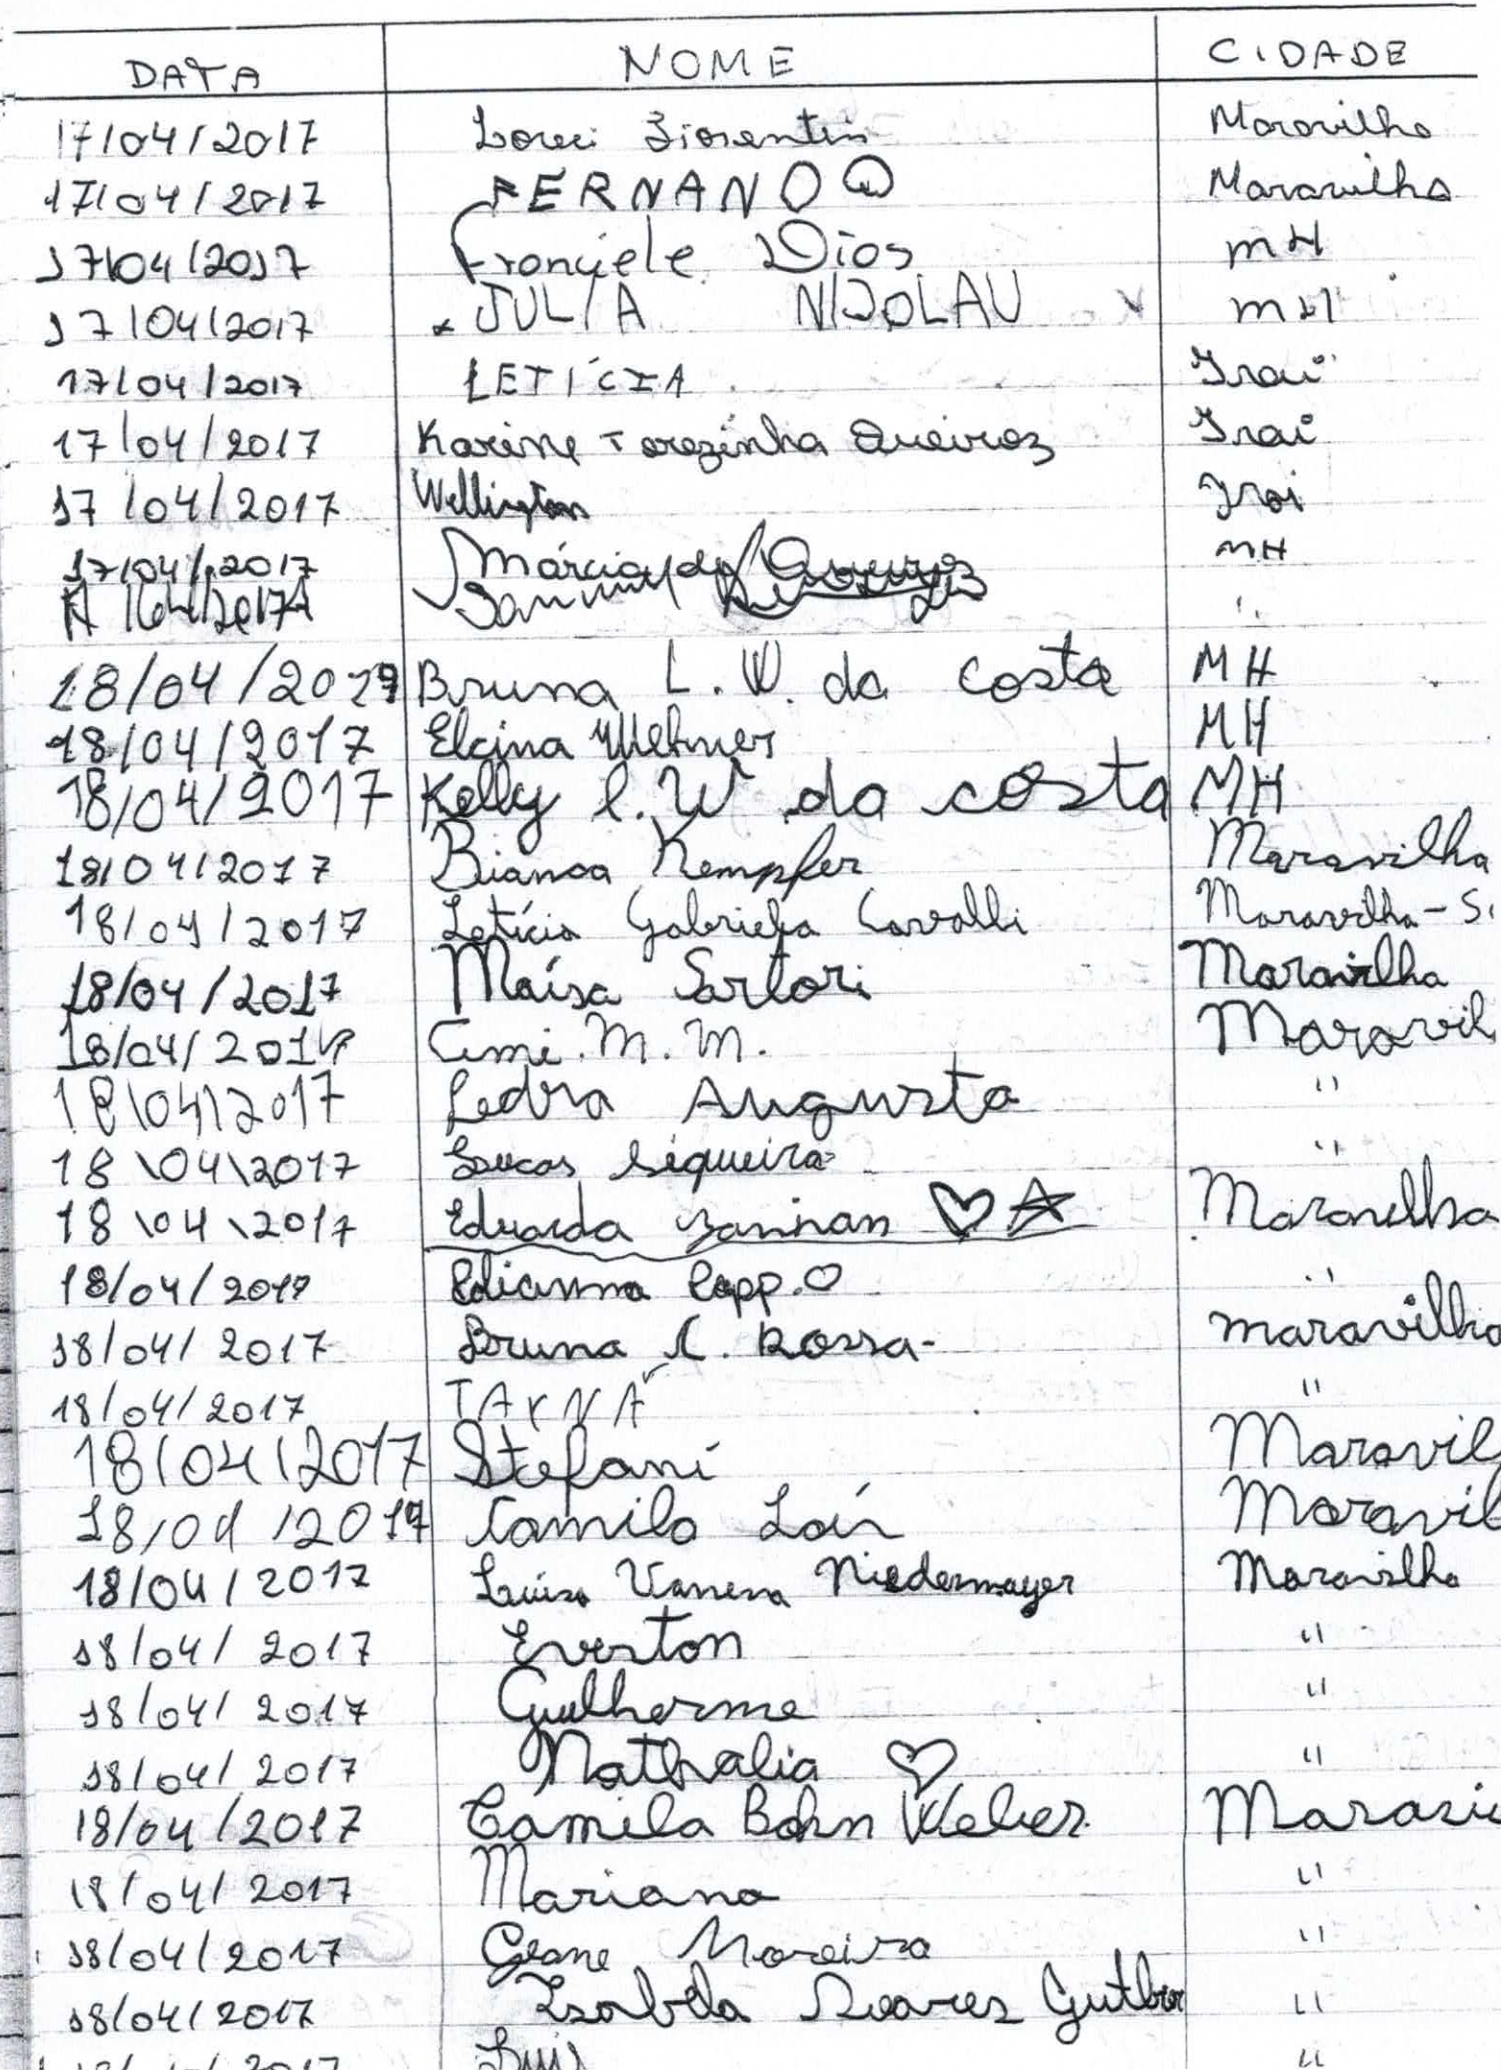 DATA NOME CIDADE
17/04/2017 Loreci Fiorentin Maravilha
17/04/2017 FERNANDO Maravilha
17/04/2017 Franciele Dias MH
17/04/2017 JULIA NICOLAU MH
17/04/2017 LETÍCIA Iraí
17/04/2017 Karine Terezinha Queiroz Iraí
17/04/2017 Wellington Iraí
17/04/2017 Márcia de MH
/04/2017 "
18/04/2017 Bruna L. W. da Costa MH
18/04/2017 Elcina Wehner MH
18/04/2017 Kelly C. W da costa MH
18/04/2017 Bianca Kempfer Maravilha
18/04/2017 Letícia Gabriela Cavalli Maravilha - S
18/04/2017 Maísa Sartori Maravilha
18/04/2017 M. M. Maravil
18/04/2017 Ledra Augusta "
18\04\2017 Lucas Siqueira "
18\04\2017 Eduarda Zannan Maravilha
18/04/2017 Edianna Rapp. "
18/04/2017 Bruna C. Rossa - maravilha
18/04/2017 TAYNÁ "
18/04/2017 Stefani Maravil
18/04/2017 Camila Laís Maravil
18/04/2017 Luiza Vanessa Niedermayer Maravilha
18/04/2017 Everton "
18/04/2017 Guilherme "
18/04/2017 Nathalia "
18/04/2017 Camila Bohn Weber Maravi
18/04/2017 Mariana "
18/04/2017 Geane Moreira "
18/04/2017 Isabela Soares "
2017 Luis "